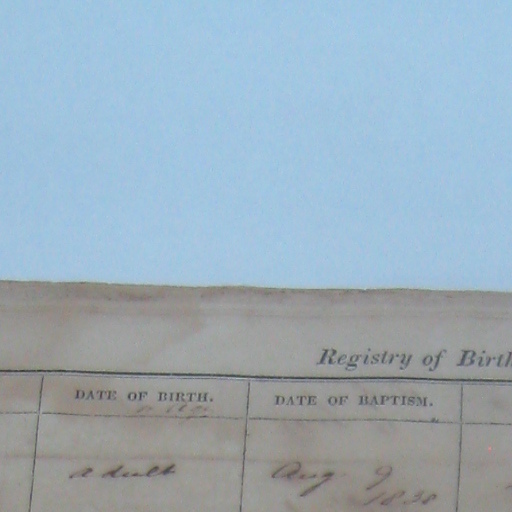 Registry of Birth
DATE OF BIRTH. DATE OF BAPTISM.
adult Aug 9
1838